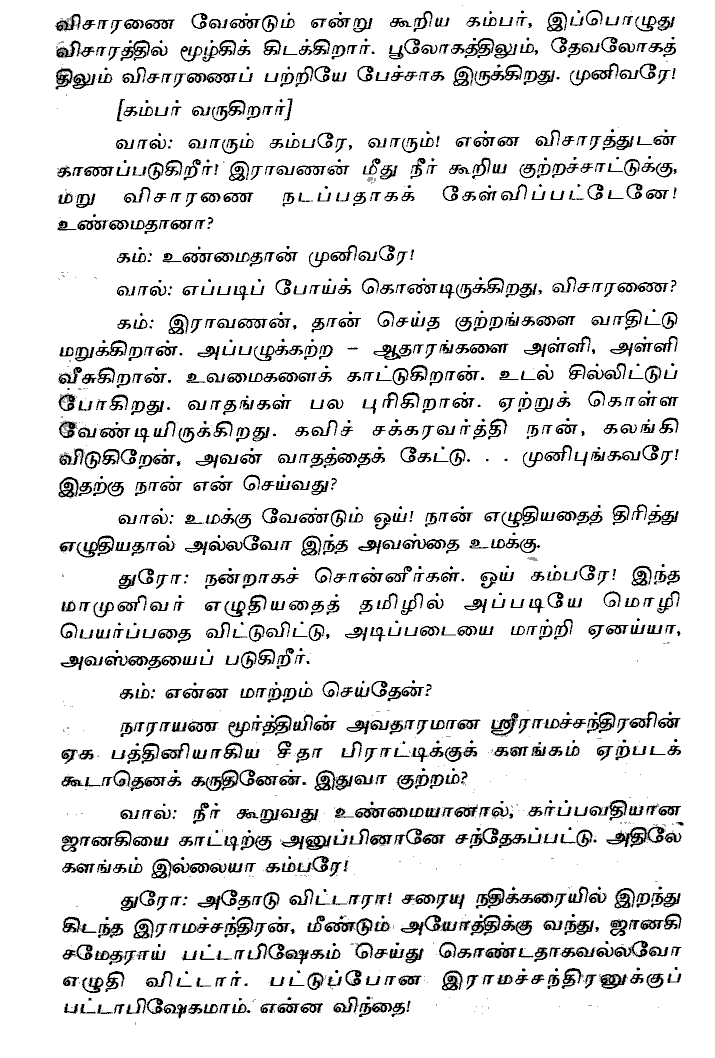 விசாரணை வேண்டும் என்று கூறிய கம்பர், இப்பொழுது
விசாரத்தில் மூழ்கிக் கிடக்கிறார். பூலோகத்திலும், தேவலோகத்
திலும் விசாரணைப் பற்றியே பேச்சாக இருக்கிறது. முனிவரே!
[கம்பர் வருகிறார்]
வால்: வாரும் கம்பரே, வாரும்! என்ன விசாரத்துடன்
காணப்படுகிறீர்! இராவணன் மீது நீர் கூறிய குற்றச்சாட்டுக்கு,
மறு விசாரணை நடப்பதாகக் கேள்விப்பட்டேனே!
உண்மைதானா?
கம்: உண்மைதான் முனிவரே!
வால்: எப்படிப் போய்க் கொண்டிருக்கிறது, விசாரணை?
கம்: இராவணன், தான் செய்த குற்றங்களை வாதிட்டு
மறுக்கிறான். அப்பழுக்கற்ற – ஆதாரங்களை அள்ளி, அள்ளி
வீசுகிறான். உவமைகளைக் காட்டுகிறான். உடல் சில்லிட்டுப்
போகிறது. வாதங்கள் பல புரிகிறான். ஏற்றுக் கொள்ள
வேண்டியிருக்கிறது. கவிச் சக்கரவர்த்தி நான், கலங்கி
விடுகிறேன், அவன் வாதத்தைக் கேட்டு. . . முனிபுங்கவரே!
இதற்கு நான் என் செய்வது?
வால்: உமக்கு வேண்டும் ஒய்! நான் எழுதியதைத் திரித்து
எழுதியதால் அல்லவோ இந்த அவஸ்தை உமக்கு.
துரோ: நன்றாகச் சொன்னீர்கள். ஒய் கம்பரே! இந்த
மாமுனிவர் எழுதியதைத் தமிழில் அப்படியே மொழி
பெயர்ப்பதை விட்டுவிட்டு, அடிப்படையை மாற்றி ஏனய்யா,
அவஸ்தையைப் படுகிறீர்.
கம்: என்ன மாற்றம் செய்தேன்?
நாராயண மூர்த்தியின் அவதாரமான ஸ்ரீராமச்சந்திரனின்
ஏக பத்தினியாகிய சீதா பிராட்டிக்குக் களங்கம் ஏற்படக்
கூடாதெனக் கருதினேன். இதுவா குற்றம்?
வால்: நீர் கூறுவது உண்மையானால், கர்ப்பவதியான
ஜானகியை காட்டிற்கு அனுப்பினானே சந்தேகப்பட்டு. அதிலே
களங்கம் இல்லையா கம்பரே!
துரோ: அதோடு விட்டாரா! சரையு நதிக்கரையில் இறந்து
கிடந்த இராமச்சந்திரன், மீண்டும் அயோத்திக்கு வந்து, ஜானகி
சமேதராய் பட்டாபிஷேகம் செய்து கொண்டதாகவல்லவோ
எழுதி விட்டார். பட்டுப்போன இராமச்சந்திரனுக்குப்
பட்டாபிஷேகமாம். என்ன விந்தை!